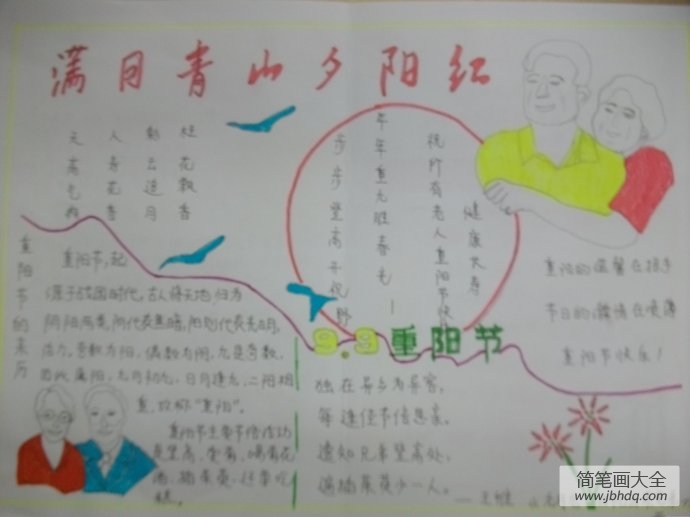 满目青山夕阳红
天高气爽
人寿花香
彩云追月
桂花飘香
步步登高开视野
年年重九胜春光
祝所有老人重阳节快乐
健康长寿
重阳节的来历
重阳节,起
源于战国时代,古人将天地归为
阴阳两类,阴代表黑暗,阳则代表光明,
活力。奇数为阳,偶数为阴。九是奇数,
因此属阳,九月初九,日月逢九,二阳相
重,故称“重阳”。
重阳节主要节俗活动
是登高,
赏菊,喝菊花
酒,插茱萸,还要吃
糕。
9.9重阳节
独在异乡为异客,
每逢佳节倍思亲。
遥知兄弟登高处,
遍插茱萸少一人。
——王维
重阳的温馨在招手
节日的激情在喷薄
重阳节快乐!
简笔画大全
www.jbhdq.com